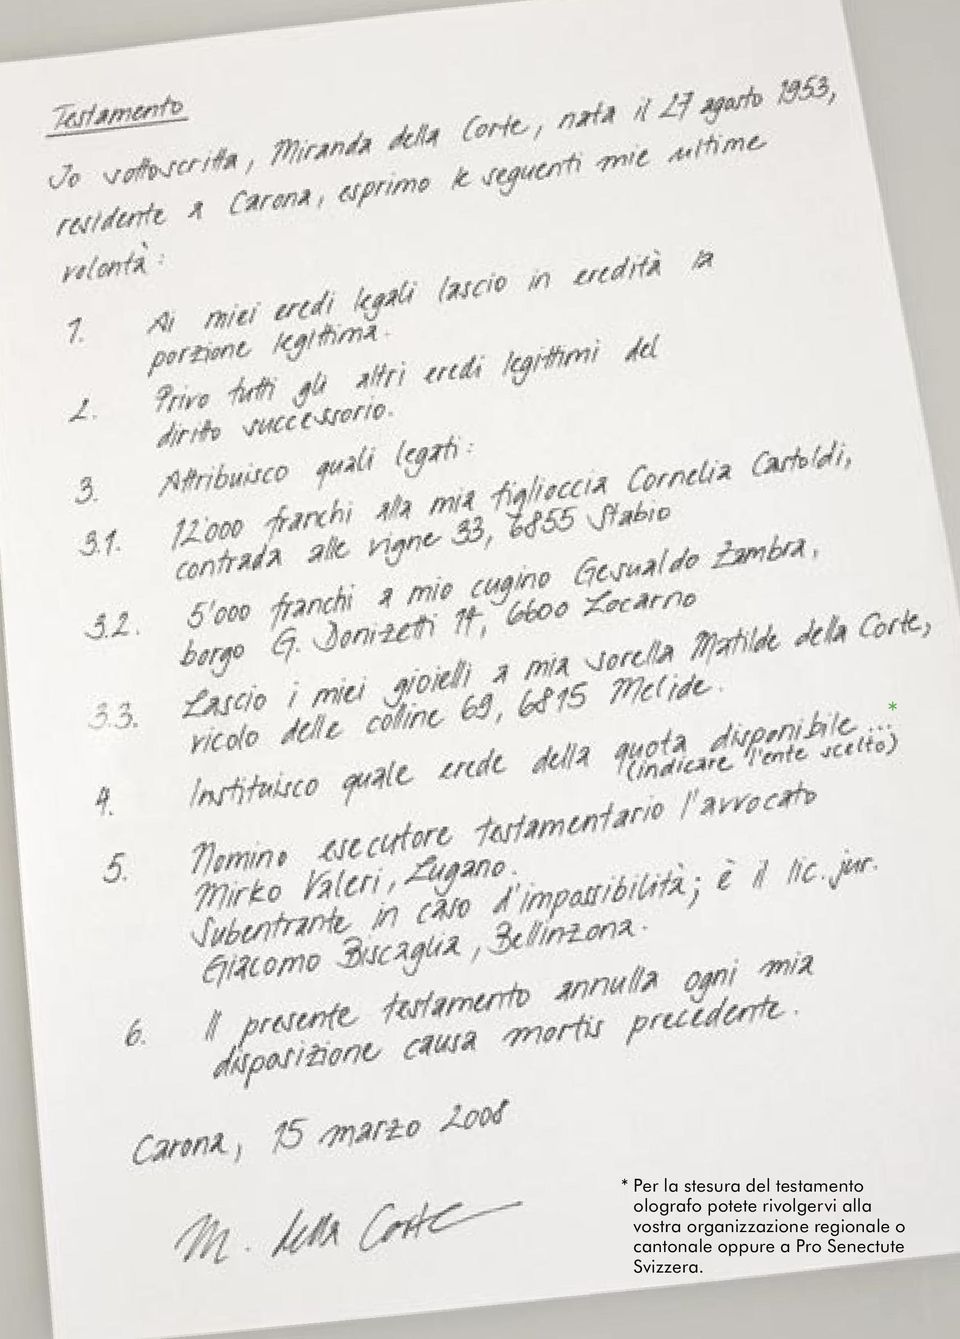 Testamento
Io sottoscritta, Miranda della Corte, nata il 27 agosto 1953,
residente a Carona, esprimo le seguenti mie ultime
volontà:
1. Ai miei eredi legali lascio in eredità la
porzione legittima.
2. Privo tutti gli altri eredi legittimi del
diritto successorio.
3. Attribuisco quali legati:
3.1. 12'000 franchi alla mia figlioccia Cornelia Castoldi,
contrada alle vigne 33, 6855 Stabio
3.2. 5'000 franchi a mio cugino Gesualdo Zambra,
borgo G. Donizetti 14, 6600 Locarno
3.3. Lascio i miei gioielli a mia sorella Matilde della Corte,
vicolo delle colline 69, 6815 Melide.
4. Instituisco quale erede della quota disponibile ... *
(indicare l'ente scelto)
5. Nomino esecutore testamentario l'avvocato
Mirko Valeri, Lugano.
Subentrante in caso d'impossibilità; è il lic. jur.
Giacomo Biscaglia, Bellinzona.
6. Il presente testamento annulla ogni mia
disposizione causa mortis precedente.
Carona, 15 marzo 2008
M. della Corte
* Per la stesura del testamento
olografo potete rivolgervi alla
vostra organizzazione regionale o
cantonale oppure a Pro Senectute
Svizzera.